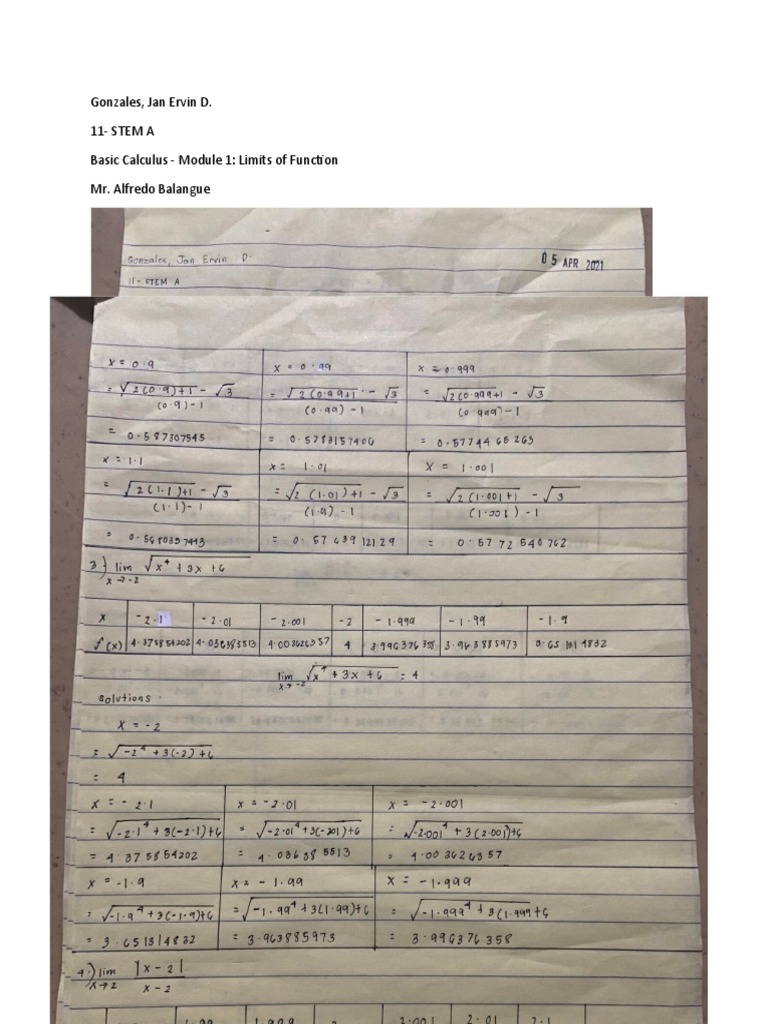 Gonzales, Jan Ervin D.
11- STEM A
Basic Calculus - Module 1: Limits of Function
Mr. Alfredo Balangue
Gonzales, Jan Ervin D.
05 APR 2021
11 - STEM A
x = 0.9 x = 0.99 x = 0.999
= √2(0.9)+1 - √3 = √2(0.99+1 - √3 = √2(0.999+1 - √3
(0.9) - 1 (0.99) - 1 (0.999) - 1
= 0.587307545 = 0.5783157406 = 0.5774465263
x = 1.1 x = 1.01 x = 1.001
= √2(1.1)+1 - √3 = √2(1.01)+1 - √3 = √2(1.001+1 - √3
(1.1) - 1 (1.9) - 1 (1.001) - 1
= = 0.5763912129 = 0.5772540762
3) lim √x⁴ + 3x + 6
x → -2
x -2.1 -2.01 -2.001 -2 -1.999 -1.99 -1.9
f(x) 4.375854202 4.036385513 4.003626357 4 3.996376358 3.963885973
lim √x⁴ + 3x + 6 = 4
x → -2
solutions
x = -2
= √-2⁴ + 3(-2) + 6
= 4
x = -2.1 x = -2.01 x = -2.001
= √-2.1⁴ + 3(-2.1)+6 = √-2.01⁴ + 3(-201)+6 = √-2.001⁴ + 3(2.001)+6
= 4.375854202 = 4.036385513 = 4.003626357
x = -1.9 x = -1.99 x = -1.999
= √-1.9⁴ + 3(-1.9)+6 = √-1.99⁴ + 3(1.99)+6 = √-1.999⁴ + 3(1.999+6
= 3.651314832 = 3.963885973 = 3.996376358
4.) lim |x - 2|
x → 2 x - 2
1.99 1.999 2 2.001 2.01 2.1